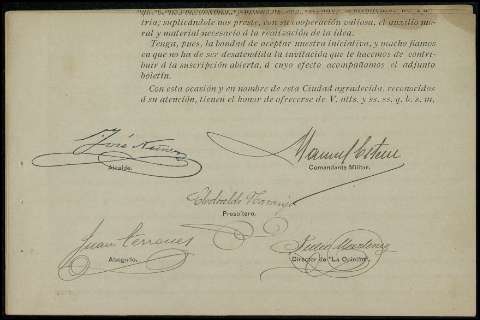 tria; suplicándole nos preste, con su cooperación valiosa, el auxilio mo-
ral y material necesario á la realización de la idea.
Tenga, pues, la bondad de aceptar nuestra iniciativa, y mucho fiamos
en que no ha de ser desatendida la invitación que le hacemos de contri-
buir á la suscripción abierta, á cuyo efecto acompañamos el adjunto
boletín.
Con esta ocasión y en nombre de esta Ciudad agradecida, reconocidos
á su atención, tienen el honor de ofrecerse de V. atts. y ss. ss. q. b. s. m,
José
Manuel
Alcalde.
Comandante Militar.
Clodoaldo Naranjo
Presbítero.
Juan Terrones
Pedro Martínez
Abogado.
Director de "La Opinión".